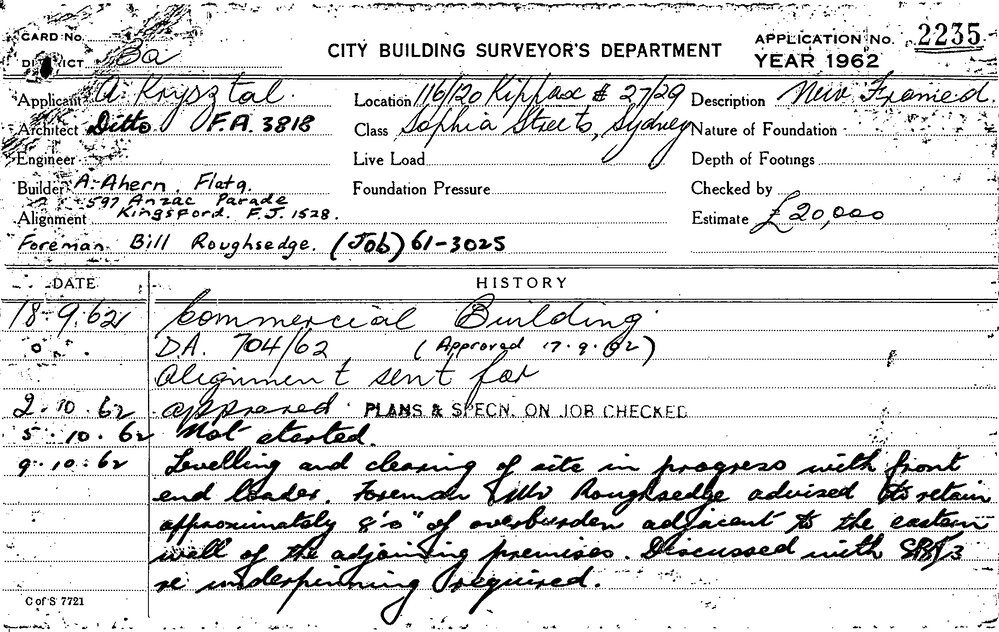 CARD No.
CITY BUILDING SURVEYOR'S DEPARTMENT
APPLICATION No. 2235
DISTRICT 3a
YEAR 1962
Applicant A. Krysztal. Location 116/120 Kippax & 27/29 Description New Framed.
Architect Ditto F.A. 3818 Class Sophia Streets, Sydney Nature of Foundation
Engineer Live Load Depth of Footings
Builder A. Ahern. Flat 9. Foundation Pressure Checked by
597 Anzac Parade
Alignment Kingsford. F.J. 1528. Estimate £20,000
Foreman Bill Roughsedge. (Job) 61-3025
DATE HISTORY
18.9.62 Commercial Building
D.A. 704/62 (Approved 17.9.62)
Alignment sent for
2.10.62 approved PLANS & SPECN. ON JOB CHECKED
5.10.62 Not started.
9.10.62 Levelling and clearing of site in progress with front
end loader. Foreman Mr Roughsedge advised to retain
approximately 8'0" of overburden adjacent to the eastern
wall of the adjoining premises. Discussed with
re underpinning required.
C of S 7721